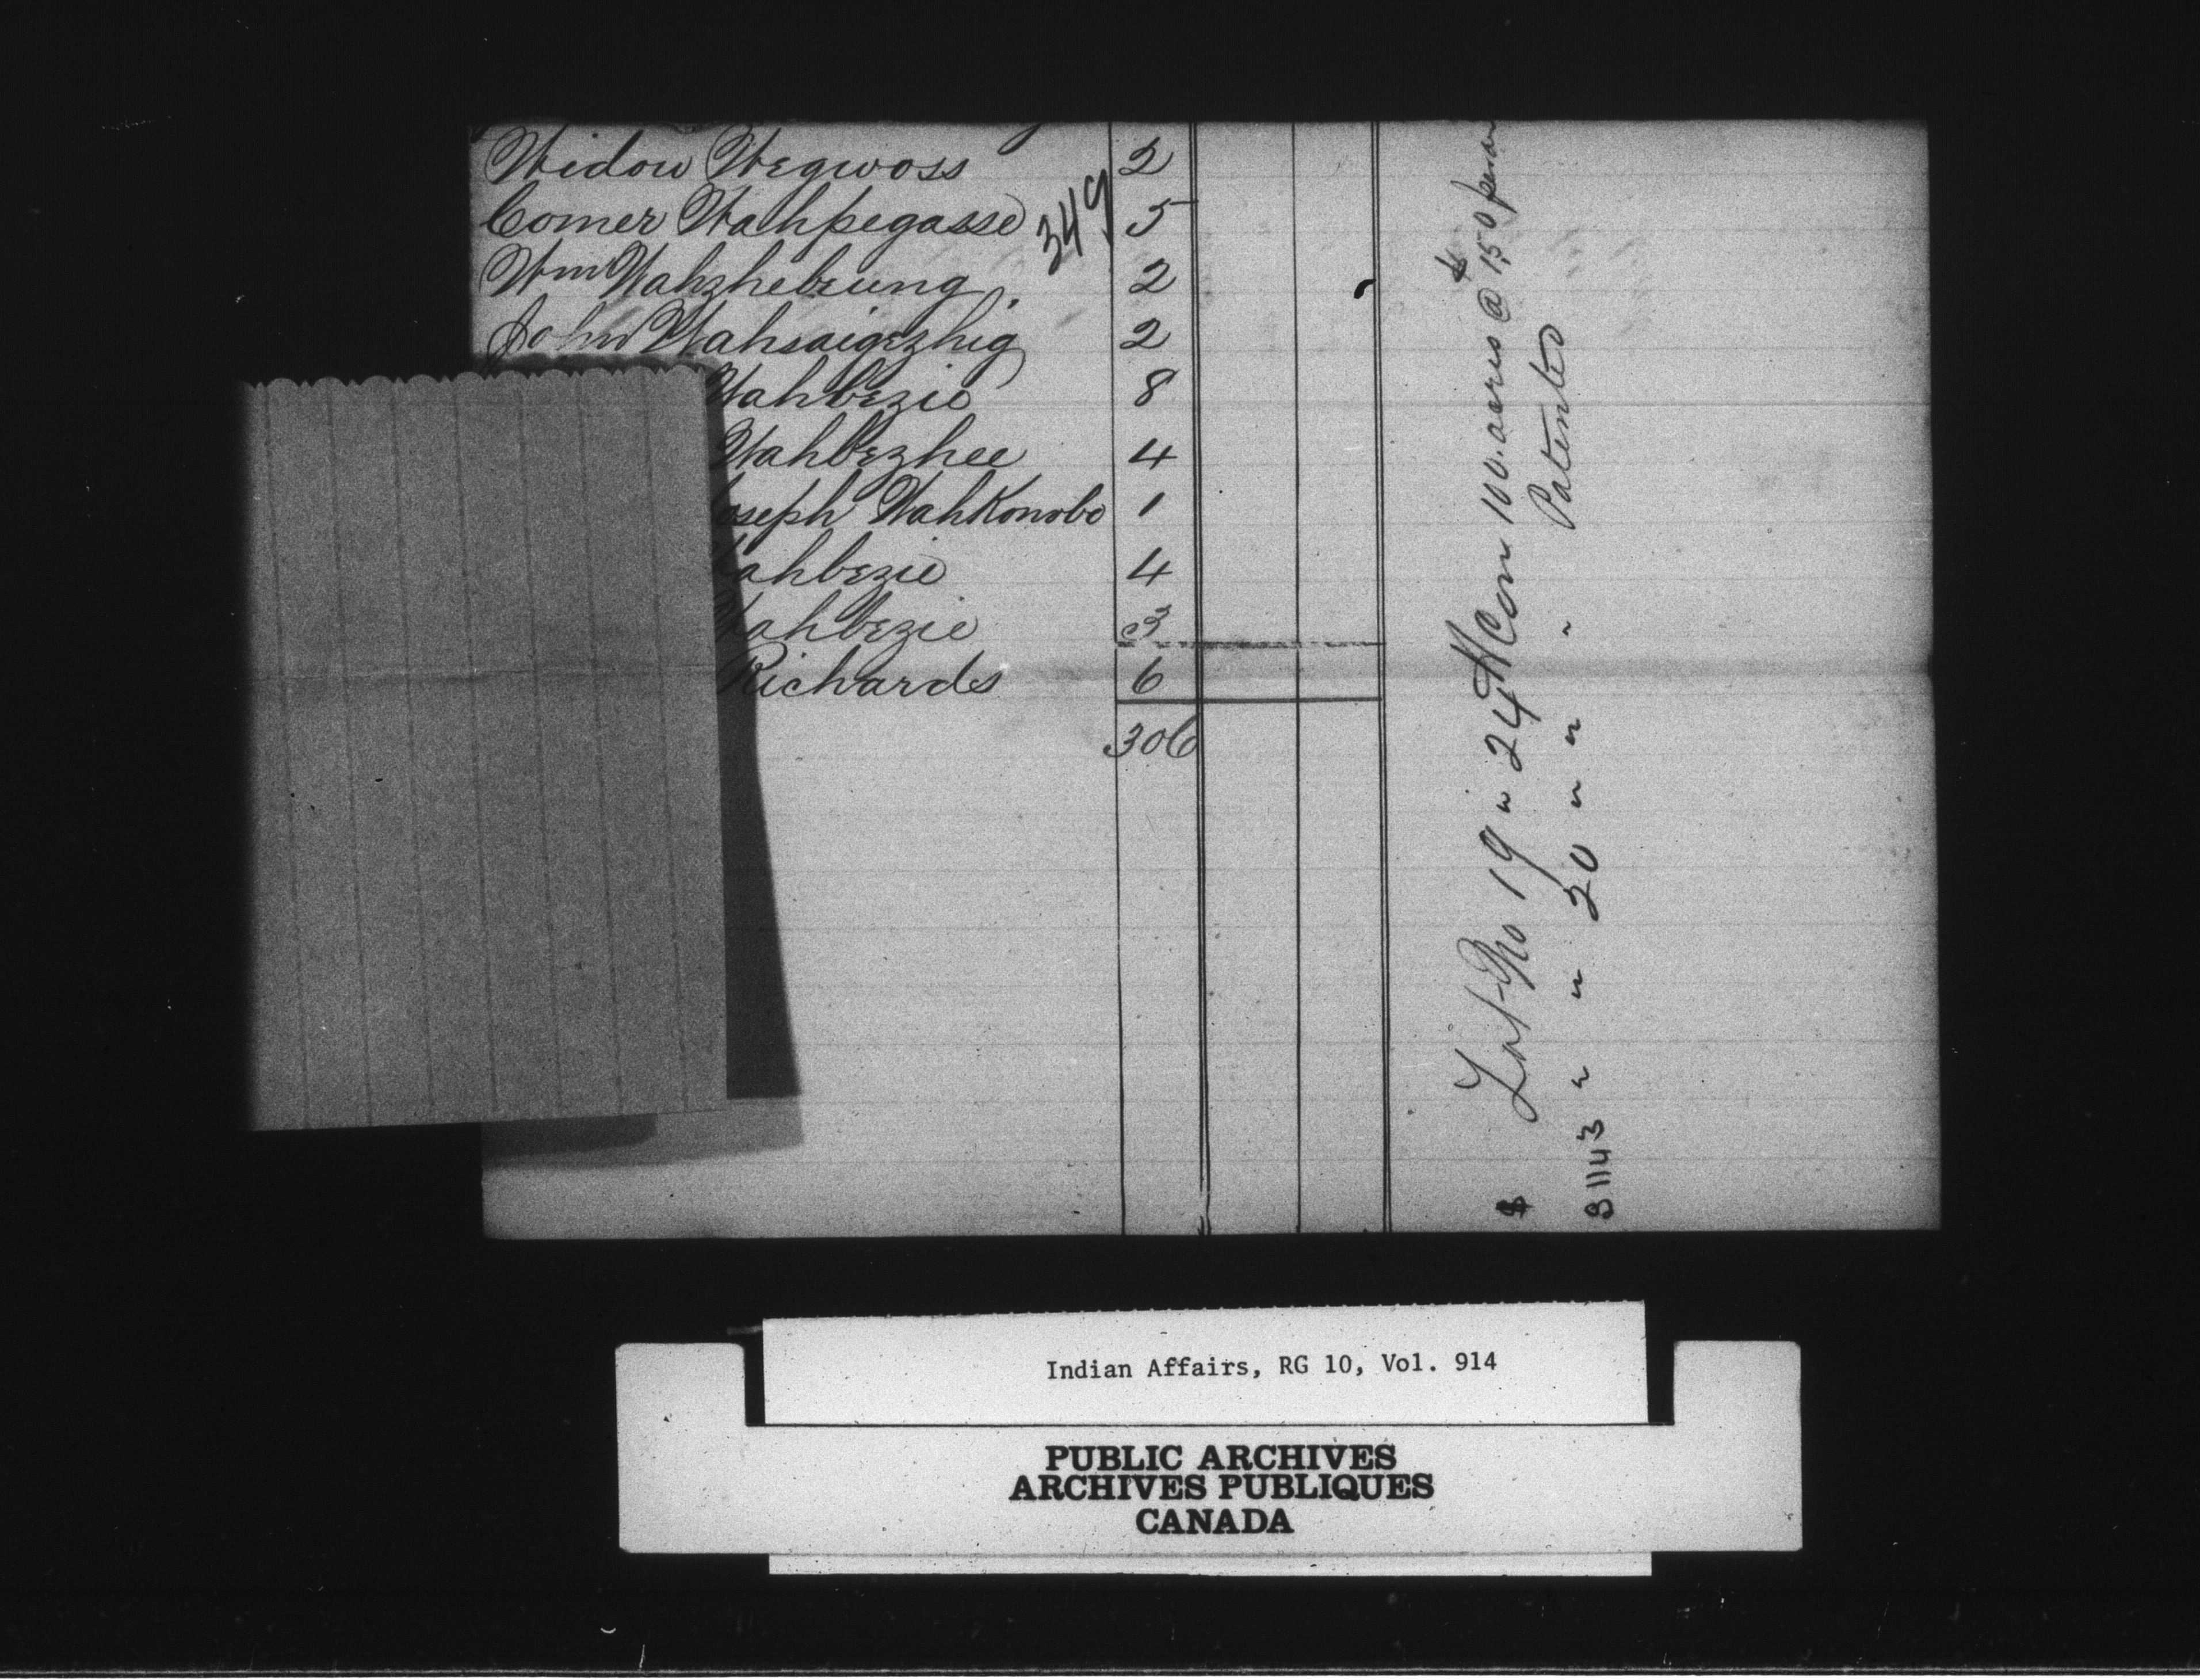 Widow Wegwoss 2
Comer Wahpegasse 5
349
Wm Wahzhebeung 2
John Wahsaigezhig 2
Wahbezie 8
Wahbezhee 4
Joseph Wahkonobo 1
Wahbezie 4
Wahbezie 3
Richards 6
306
Lot No 19 " 24 Con 100 acres @ $1.50 per acre
" " 20 " " " " Patented
$
81143
Indian Affairs, RG 10, Vol. 914
PUBLIC ARCHIVES
ARCHIVES PUBLIQUES
CANADA